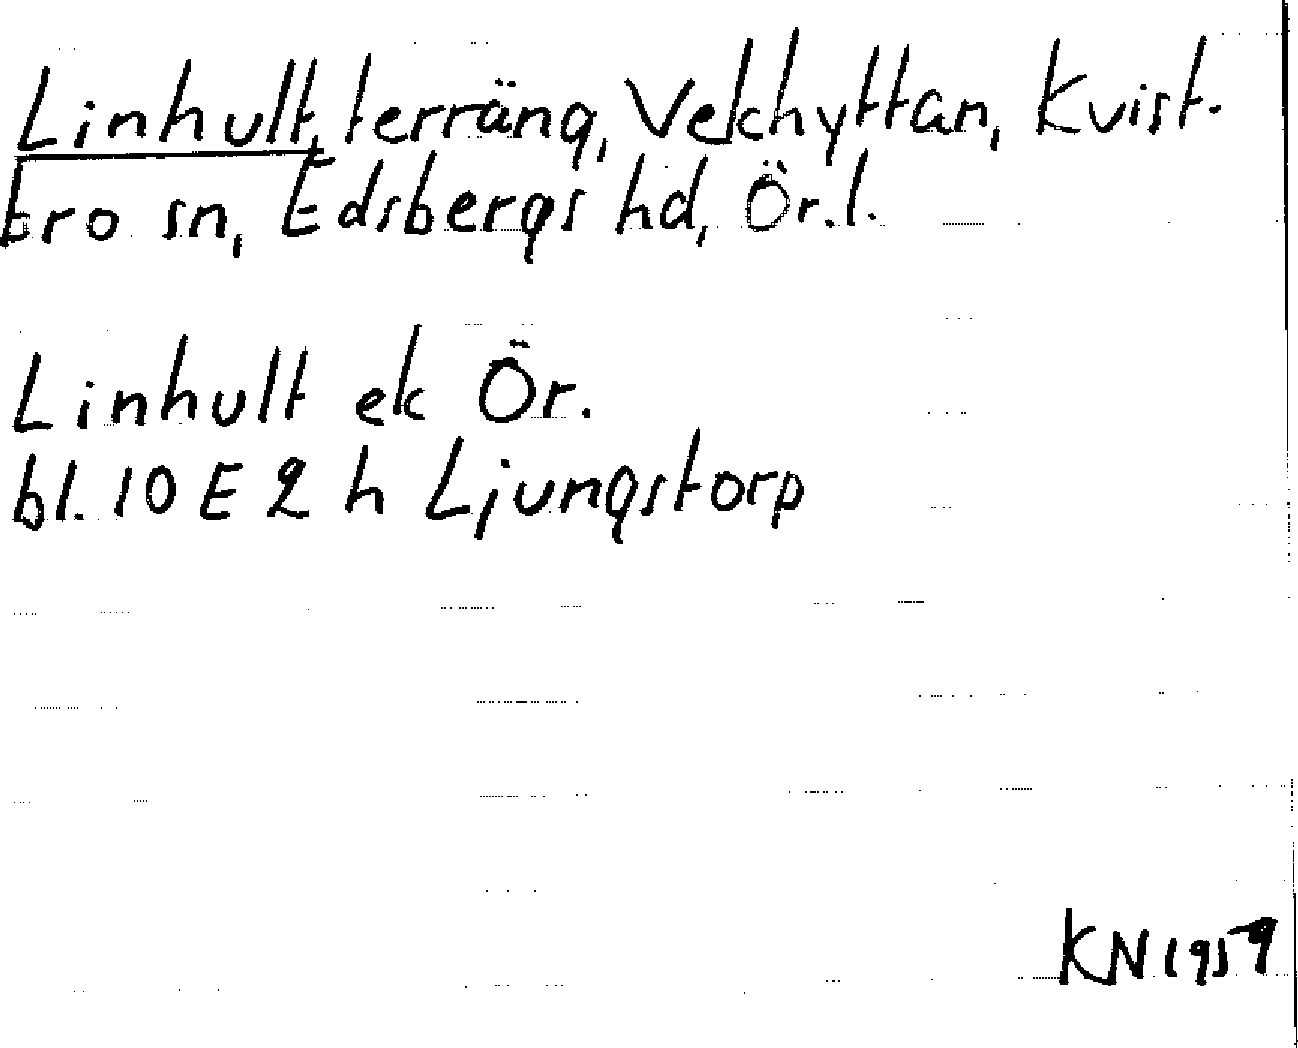 Linhult, terräng, Vekhyttan, Kvist-
bro sn, Edsbergs hd, Ör.l.
Linhult ek Ör.
bl. 10 E 2 h Ljungstorp
KN 1959